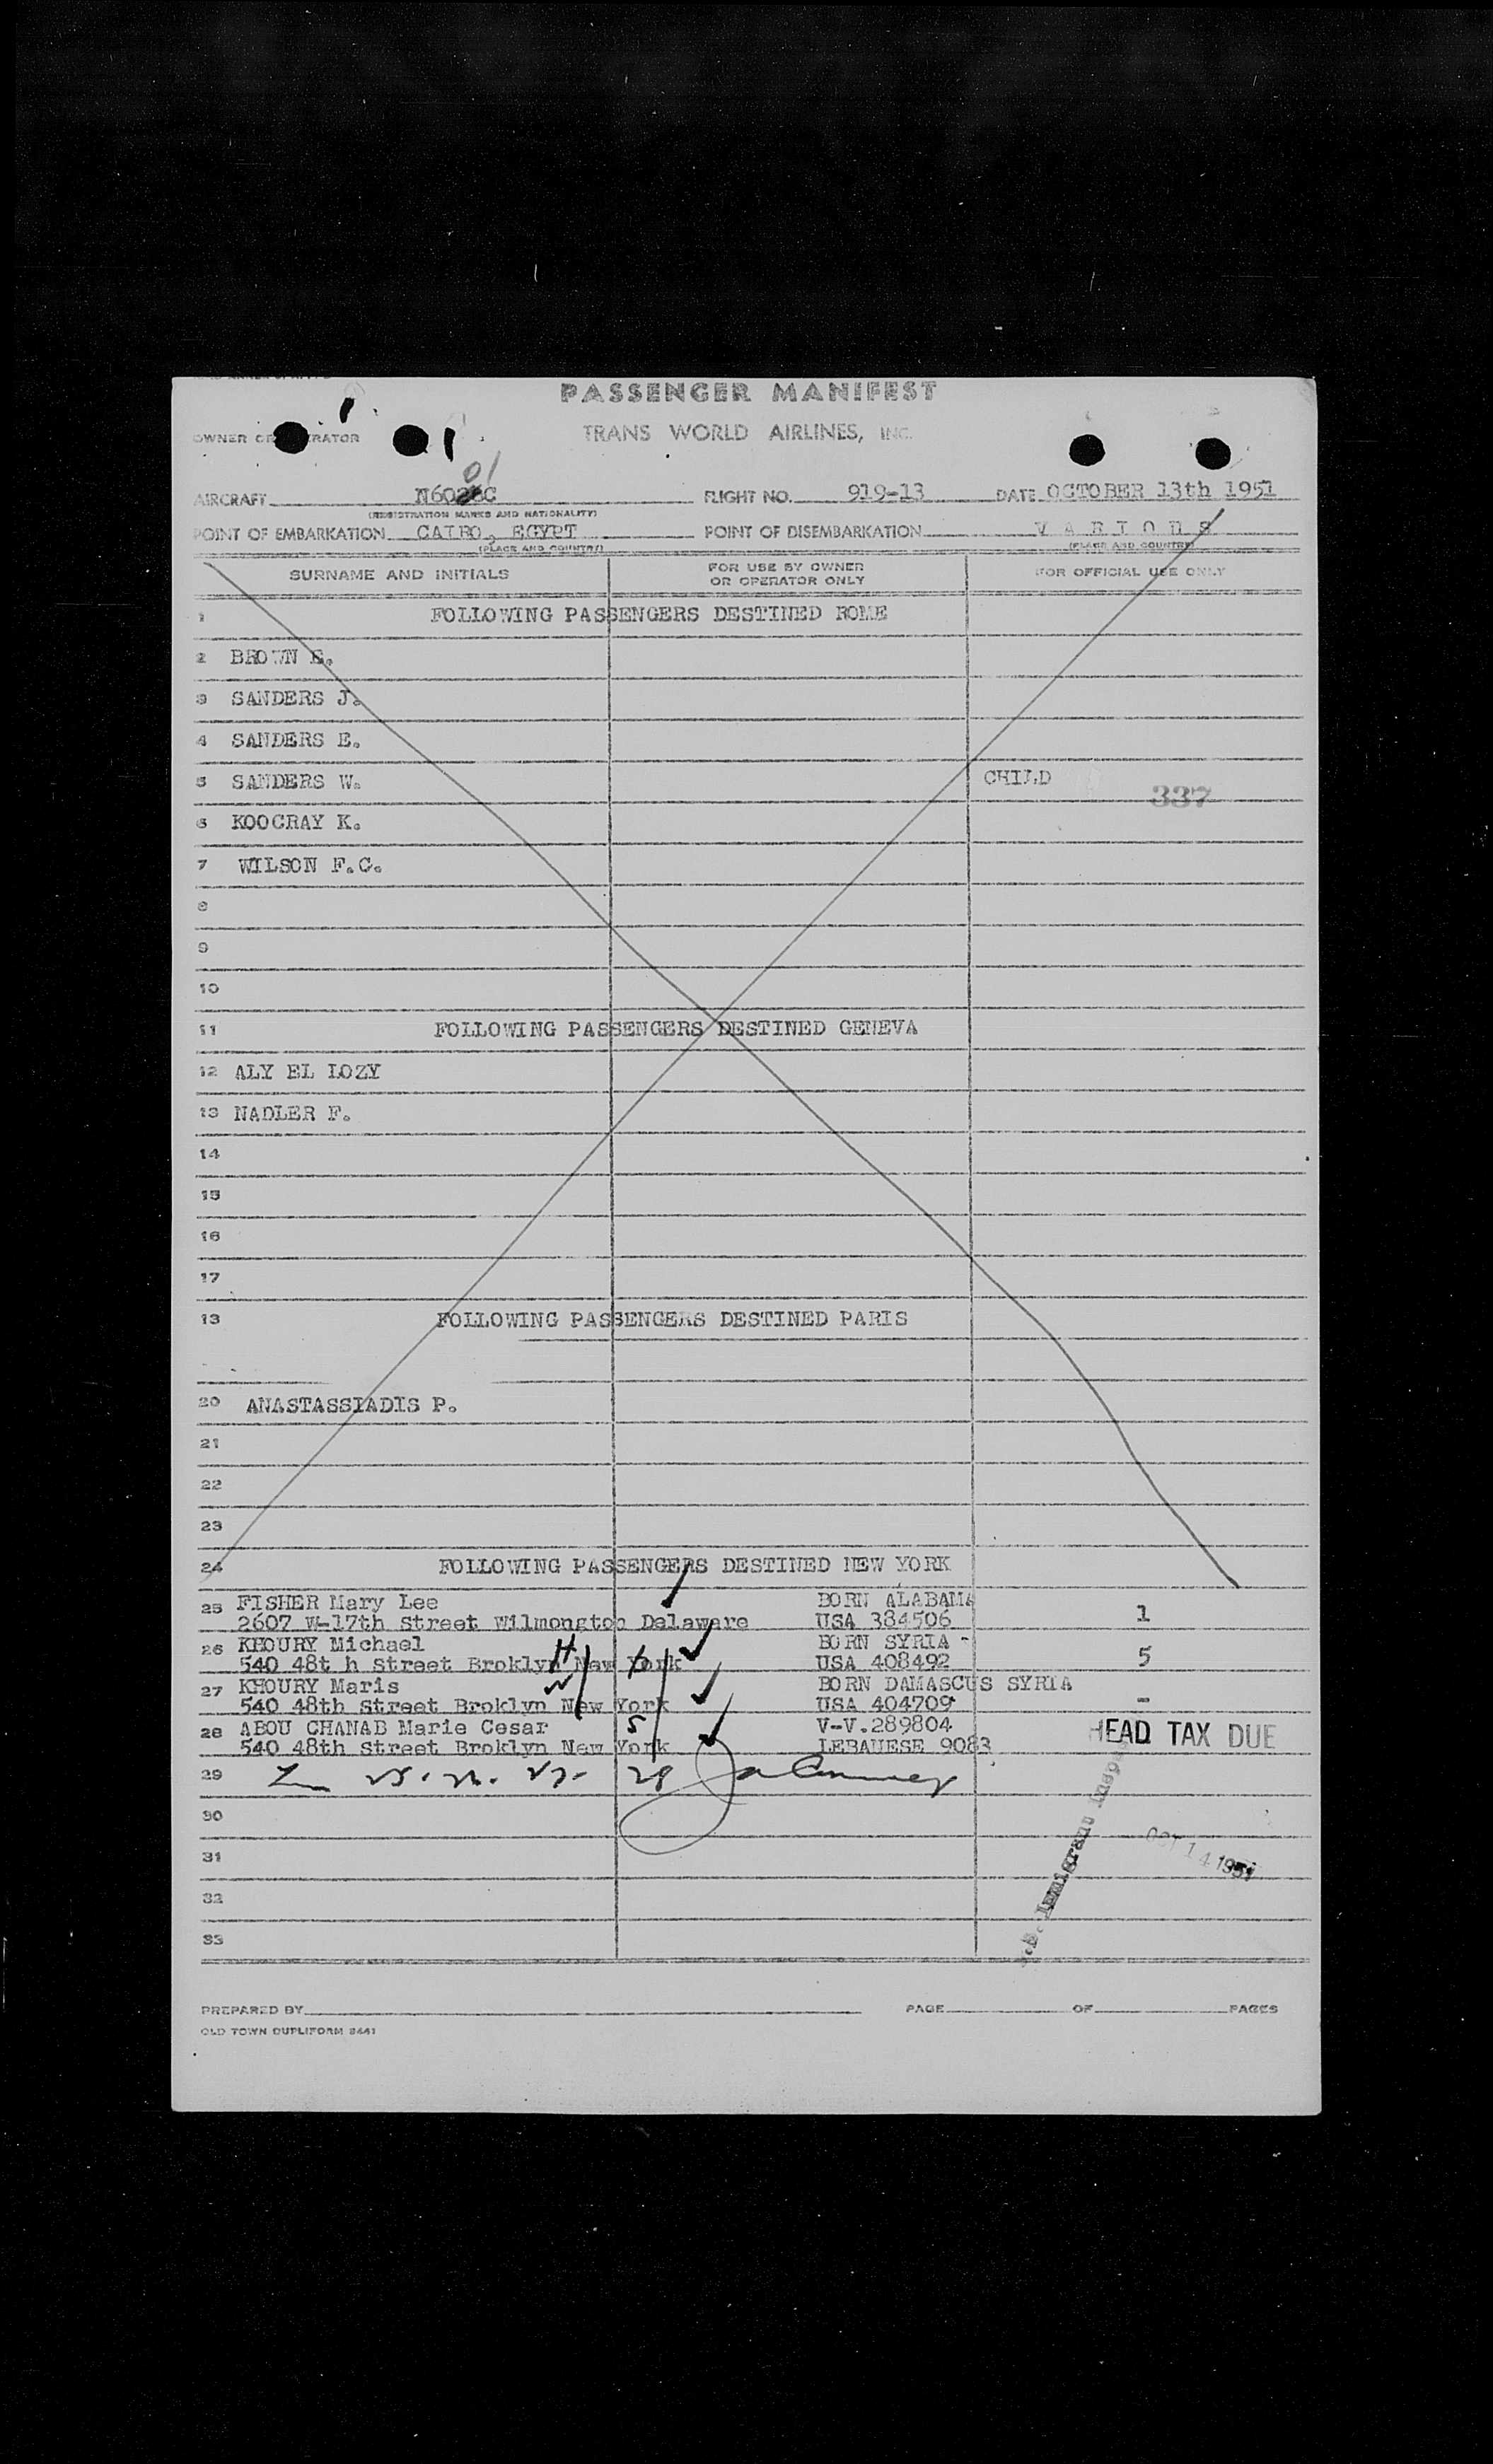 PASSENGER MANIFEST
OWNER OR OPERATOR
TRANS WORLD AIRLINES, INC.
01
AIRCRAFT N602 C FLIGHT NO. 919-13 DATE OCTOBER 13th 1951
(REGISTRATION MARKS AND NATIONALITY)
POINT OF EMBARKATION CAIRO, EGYPT POINT OF DISEMBARKATION V A R I O U S
(PLACE AND COUNTRY) (PLACE AND COUNTRY)
SURNAME AND INITIALS FOR USE BY OWNER OR OPERATOR ONLY FOR OFFICIAL USE ONLY
1 FOLLOWING PASSENGERS DESTINED ROME
2 BROWN E.
3 SANDERS J.
4 SANDERS E.
5 SANDERS W. CHILD
337
6 KOOCRAY K.
7 WILSON F.C.
8
9
10
11 FOLLOWING PASSENGERS DESTINED GENEVA
12 ALY EL LOZY
13 NADLER F.
14
15
16
17
18 FOLLOWING PASSENGERS DESTINED PARIS
20 ANASTASSIADIS P.
21
22
23
24 FOLLOWING PASSENGERS DESTINED NEW YORK
25 FISHER Mary Lee BORN ALABAMA
2607 W-17th Street Wilmongton Delaware USA 384506 1
26 KHOURY Michael BORN SYRIA -
540 48t h Street Broklyn New York USA 408492 5
27 KHOURY Maris BORN DAMASCUS SYRIA
540 48th Street Broklyn New York USA 404709 -
28 ABOU CHANAB Marie Cesar 5 V-V.289804 HEAD TAX DUE
540 48th Street Broklyn New York LEBAUESE 9083
29
30
OCT 14 1951
31
32
33
U.S. Immigrant Insp
PREPARED BY PAGE OF PAGES
OLD TOWN DUPLIFORM 8441